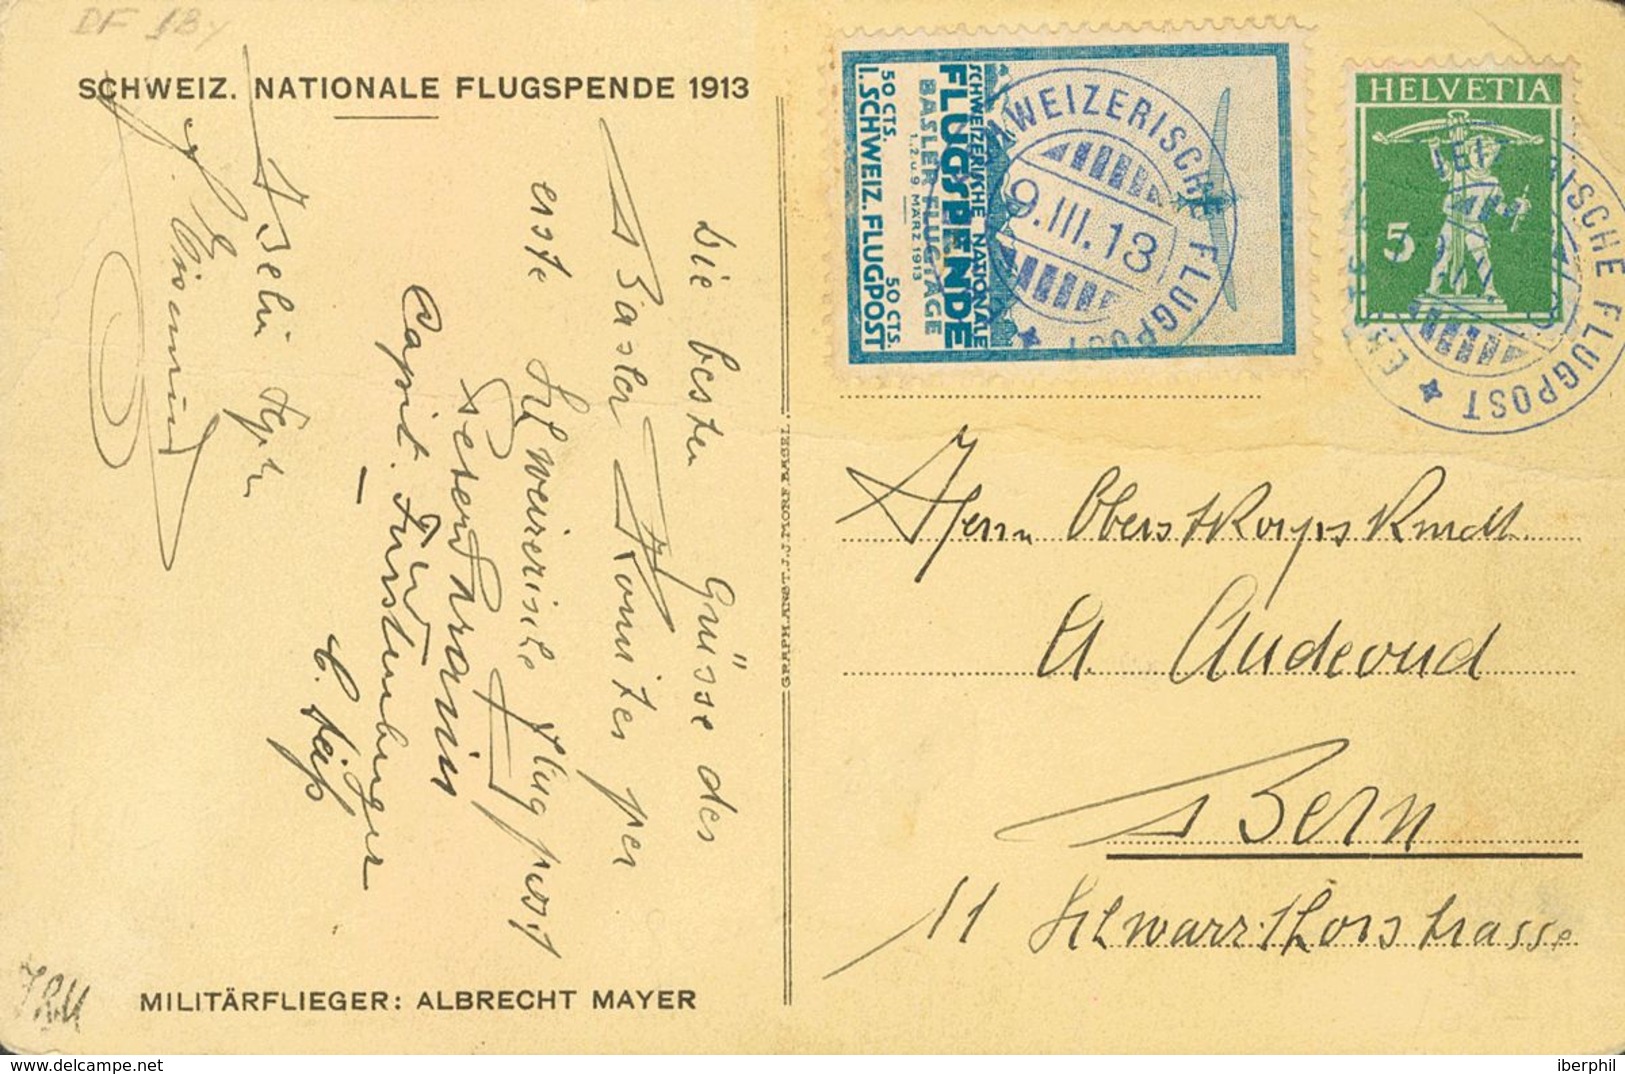 DF 1By
SCHWEIZ. NATIONALE FLUGSPENDE 1913
Die besten Grüsse des
Basler Komites per
erste Schweizerische Flugpost
Capit. Fürstenberger
MILITÄRFLIEGER: ALBRECHT MAYER
GRAPH. ANST. J. J. MORF, BASEL.
SCHWEIZERISCHE NATIONALE
FLUGSPENDE
BASLER FLUGTAGE
1. 2. u. 9. MÄRZ 1913
50 CTS. 50 CTS.
I. SCHWEIZ. FLUGPOST
SCHWEIZERISCHE FLUGPOST
9.III.13
HELVETIA
5
Herrn Oberstkorpskmdt.
A. Audeoud
Bern
11 Schwarzthorstrasse
delcampe.net
iberphil